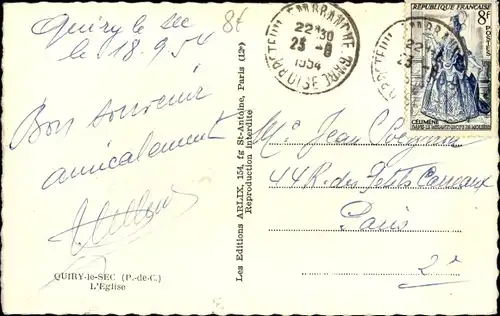 Quiry le Sec
le 18.9.54
Bon souvenir
amicalement
QUIRY-le-SEC (P.-de-C.)
L'Eglise
Les Editions ARLIX, 154, fg St-Antoine, Paris (12e)
Reproduction Interdite
8f
22 30
23 - 8
1954
OISE
RÉPUBLIQUE FRANÇAISE
8F
POSTES
CÉLIMÈNE
DANS LE MISANTHROPE DE MOLIÈRE
Mr Jean
44 R. des Petits Carreaux
Paris
2e